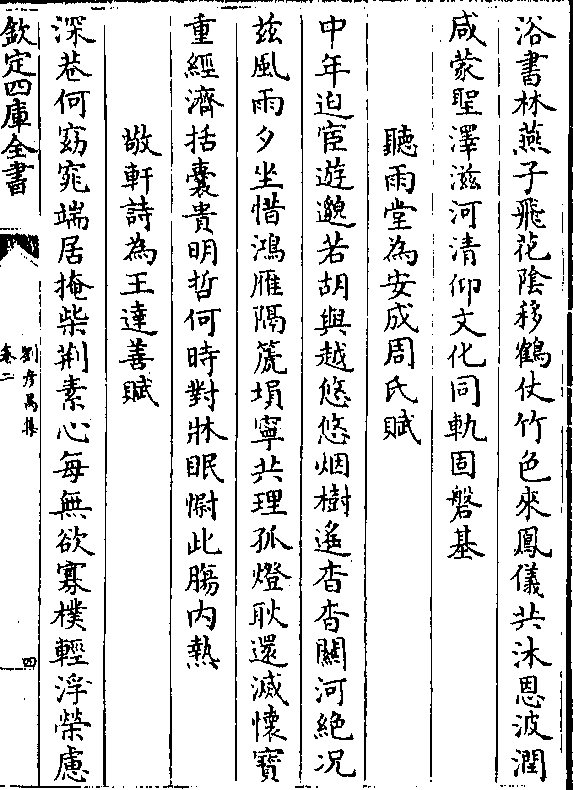 浴書林燕子飛花陰移鶴仗竹色來鳳儀共沐恩波潤
咸蒙聖澤滋河清仰文化同軌固磐基
聽雨堂為安成周氏賦
中年迫宦遊邈若胡與越悠悠烟樹遙杳杳關河絶况
兹風雨夕坐惜鴻雁隔箎塤寧共理孤燈耿還滅懐寶
重經濟括囊貴明哲何時對牀眠慰此膓内熱
敬軒詩為王達善賦
深巷何窈窕端居掩柴荆素心每無欲寡樸輕浮榮慮
欽定四庫全書
卷二
四